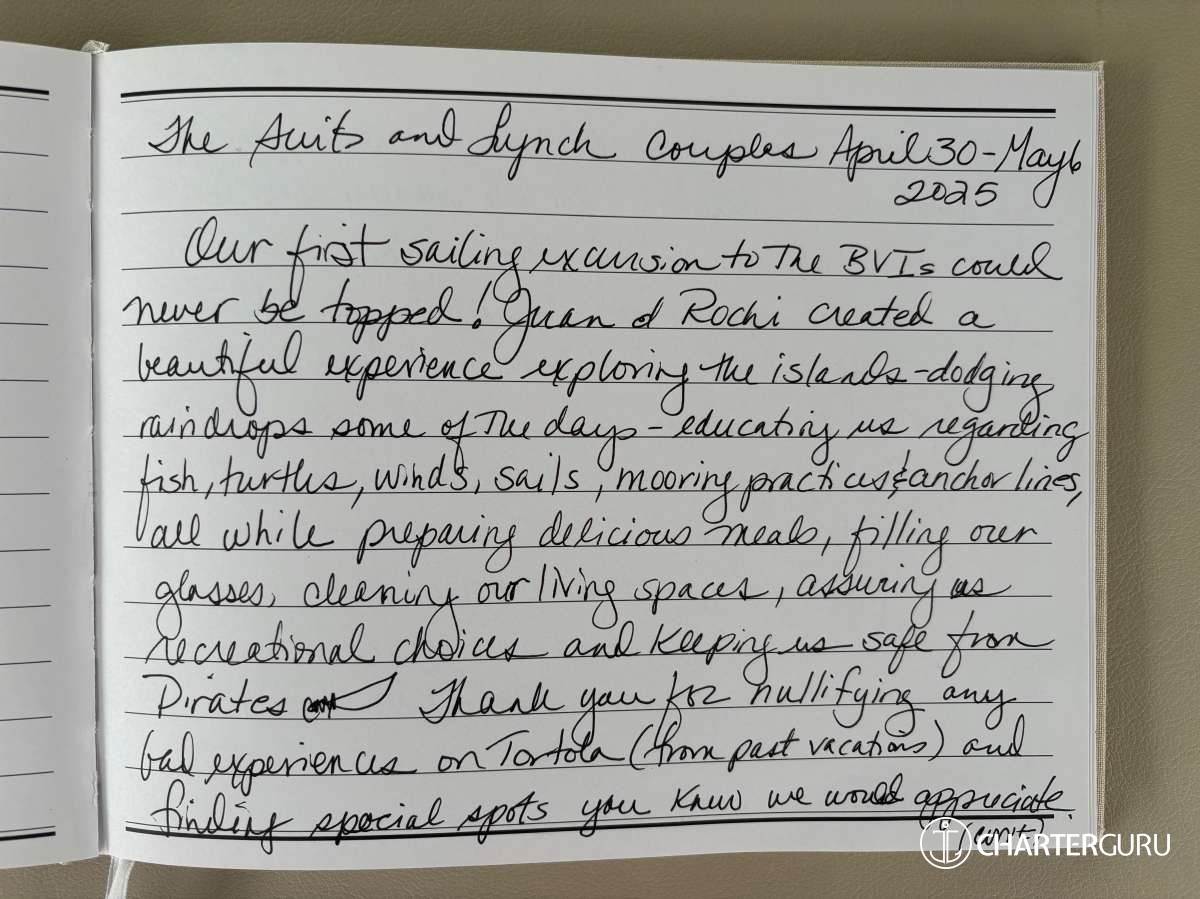 The Suits and Lynch Couples April 30 - May 6
2025
Our first sailing excursion to The BVIs could
never be topped! Juan & Rochi created a
beautiful experience exploring the islands - dodging
raindrops some of The days - educating us regarding
fish, turtles, winds, sails, mooring practices & anchor lines,
all while preparing delicious meals, filling our
glasses, cleaning our living spaces, assuring us
recreational choices and keeping us safe from
Pirates Thank you for nullifying any
bad experiences on Tortola (from past vacations) and
finding special spots you knew we would appreciate.
(cont.)
CHARTERGURU